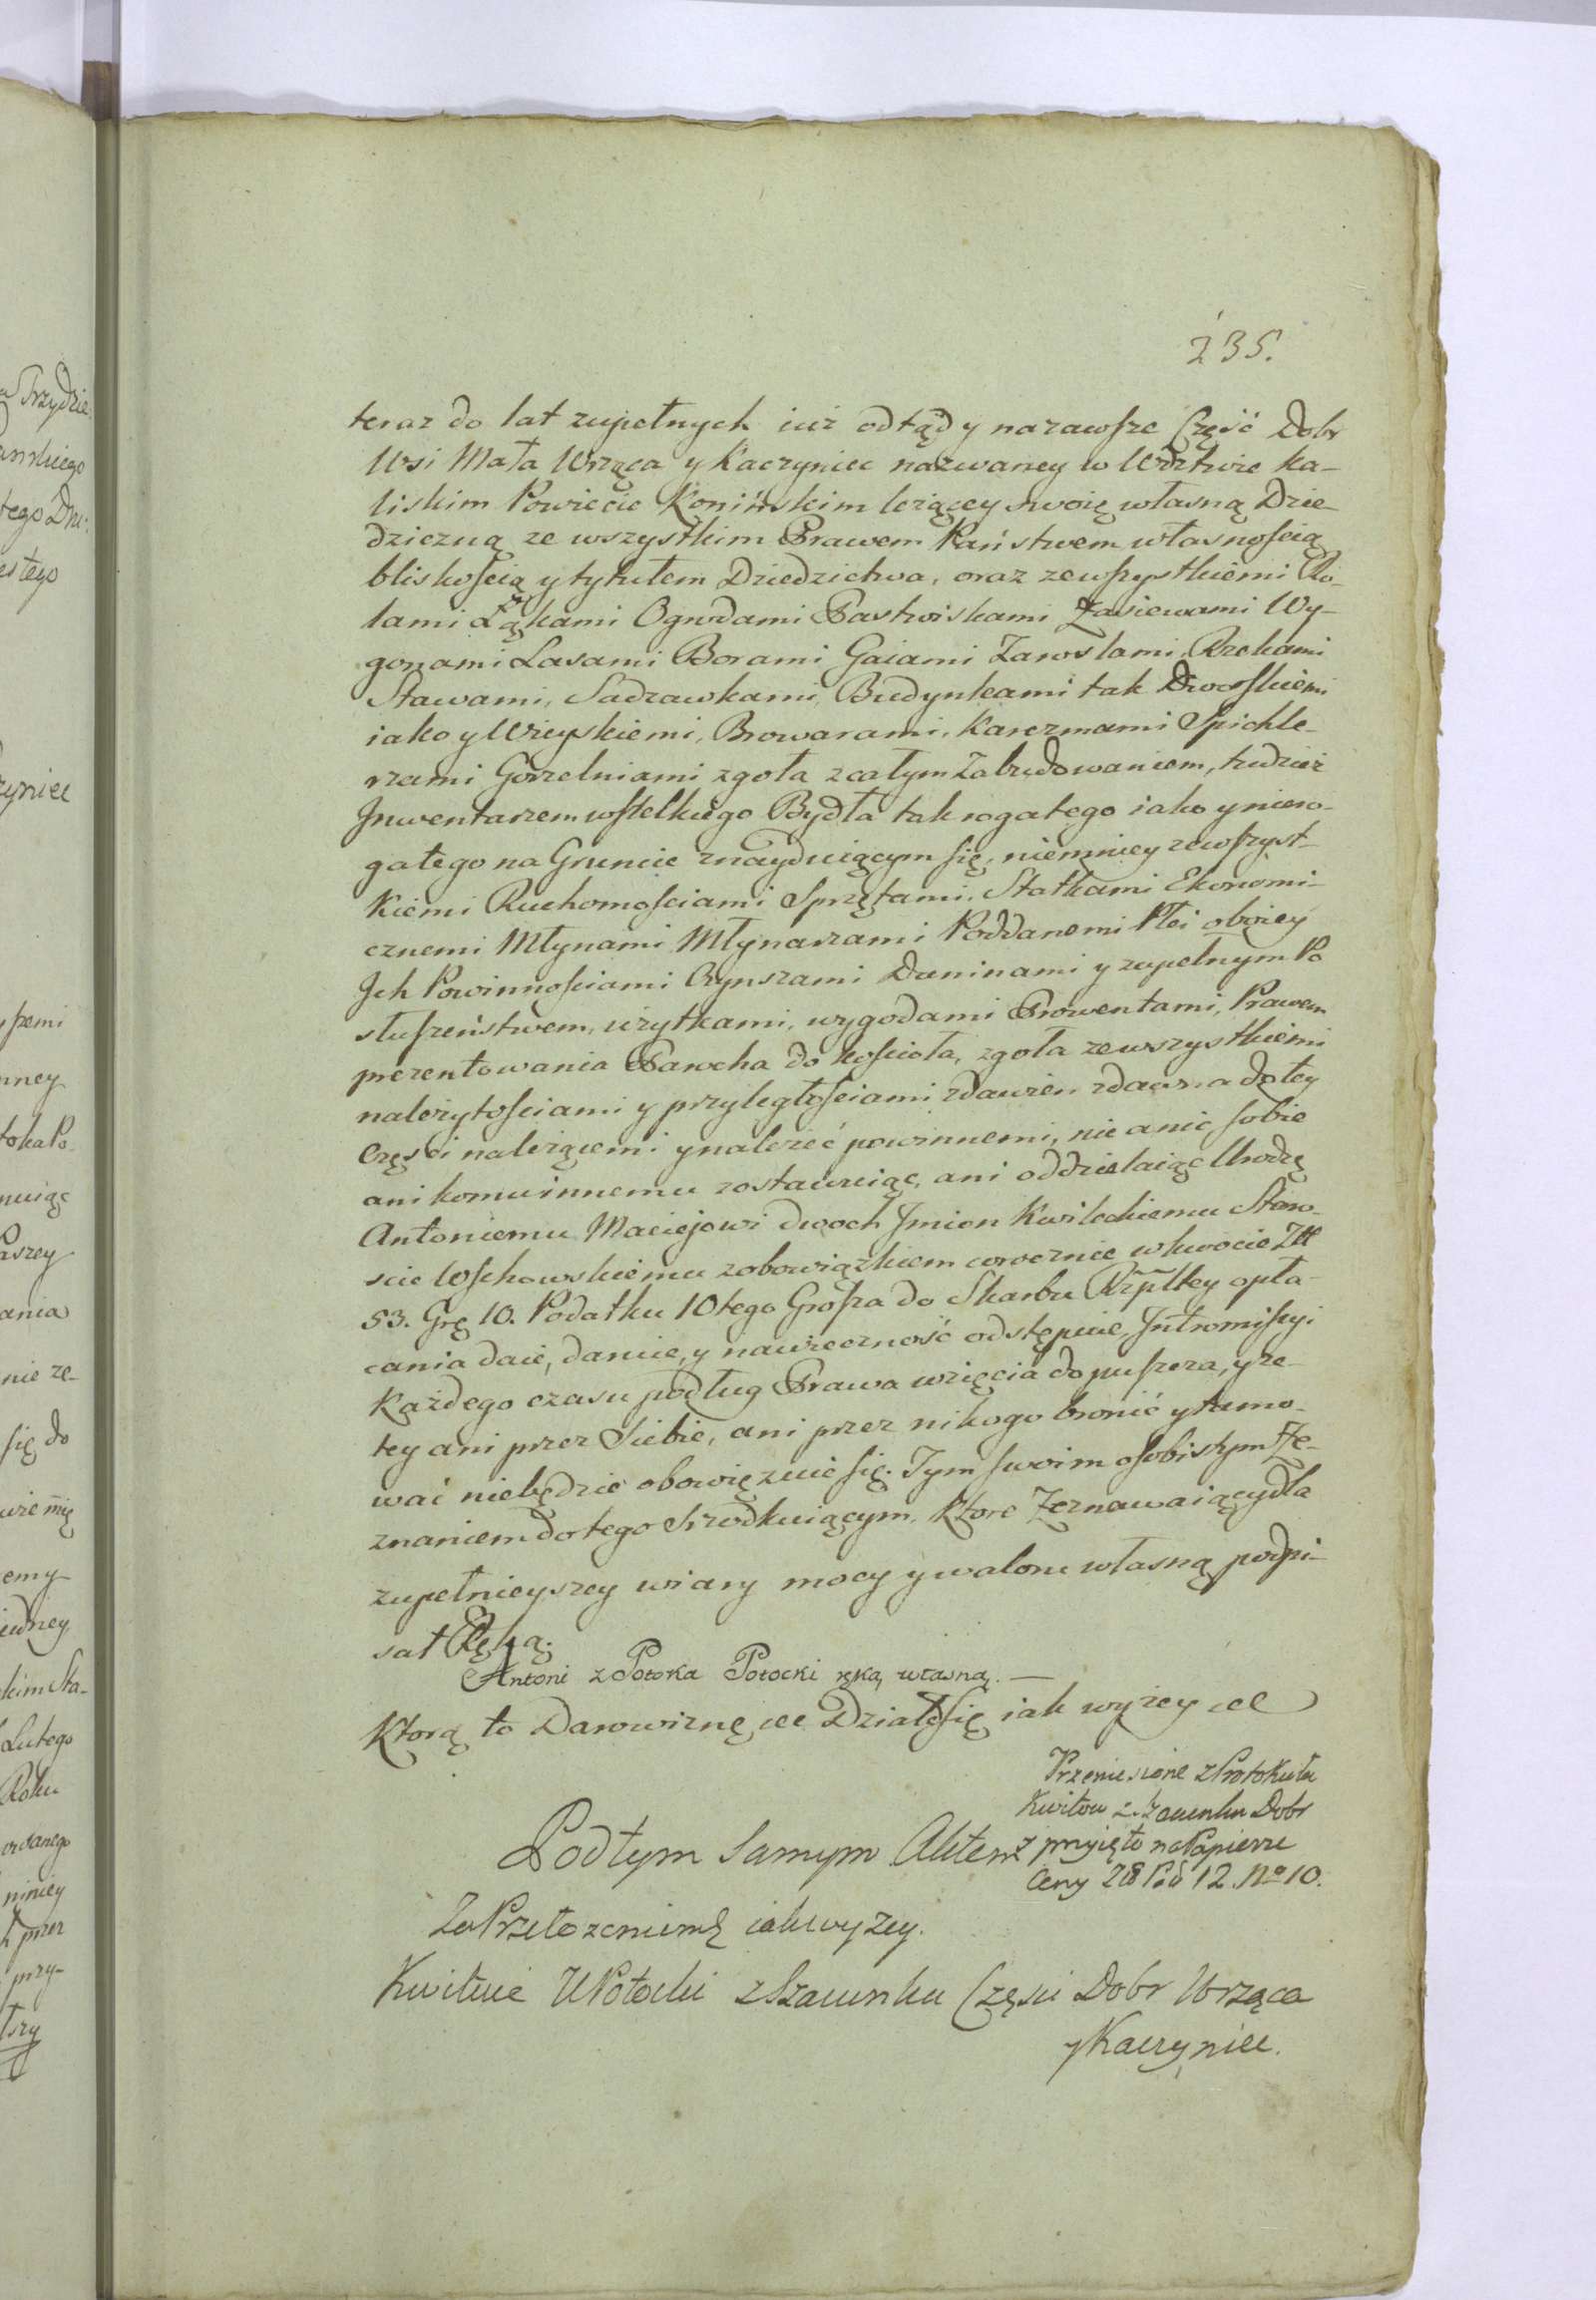 235.
teraz do lat zupełnych iuż odtąd y nazawsze Część Dobr
Wsi Mała Wrząca y Kaczyniec nazwaney w Wdztwie Ka-
liskim Powiecie Konińskim leżącey swoię własną Dzie-
dziczną ze wszystkim Prawem Państwem własnością
bliskością y tytułem Dziedzictwa, oraz zewszystkiemi Ro-
lami Łąkami Ogrodami Pastwiskami Zasiewami Wy-
gonami Lasami Borami Gaiami Zaroslami, Rzekami
Stawami, Sadzawkami, Budynkami tak Dworskiemi
iako y Wieyskiemi, Browarami, Karczmami Spichle-
rzami Gorzelniami zgoła z całym Zabudowaniem, tudzież
Inwentarzem wszelkiego Bydła tak rogatego iako y niero-
gatego na Gruncie znayduiącym się, niemniey zewszyst-
kiemi Ruchomościami Sprzętami, Statkami Ekonomi-
cznemi Młynami Młynarzami Poddanemi Płci oboiey
Ich Powinnościami Czynszami Daninami y zupełnym Po
słuszeństwem, użytkami, wygodami Prowentami, Prawem
prezentowania Parocha do Kościoła, zgoła ze wszystkiemi
należytościami y przyległościami zdawien zdawna do tey
Części należącemi y należeć powinnemi, nic a nic sobie
ani komu innemu zostawuiąc, ani oddzielaiąc Urodzę
Antoniemu Maciejowi dwoch Imion Kwileckiemu Staro-
ście Wschowskiemu z obowiązkiem corocznie w kwocie Złł
53. Grę 10. Podatku 10tego Grosza do Skarbu Rzpltey opła-
cania daie, daruie, y na wieczność odstępuie, Intromissyi
Każdego czasu podług Prawa wzięcia dopuszcza, y ze
tey ani przez Siebie, ani przez nikogo bronić y tamo-
wać niebędzie obowięzuie się. Tym swoim osobistym Ze-
znaniem do tego Srzodkuiącym, Ktore Zeznawaiący dla
zupełnieyszey wiary mocy y waloru własną podpi-
sał Ręką.
Antoni z Potoka Potocki ręką własną. —
Ktorą to Darowiznę etc Działo się iak wyżey etc
Przeniesione z Protokułu
Kwitow z Szacunku Dobr
przyięte na Papierze
Ceny 28 Pod 12. No 10.
Pod tym samym Aktem
Za Przełożeniem iak wyżey.
Kwituie U Potocki z Szacunku Części Dobr Wrząca
y Kaczyniec.